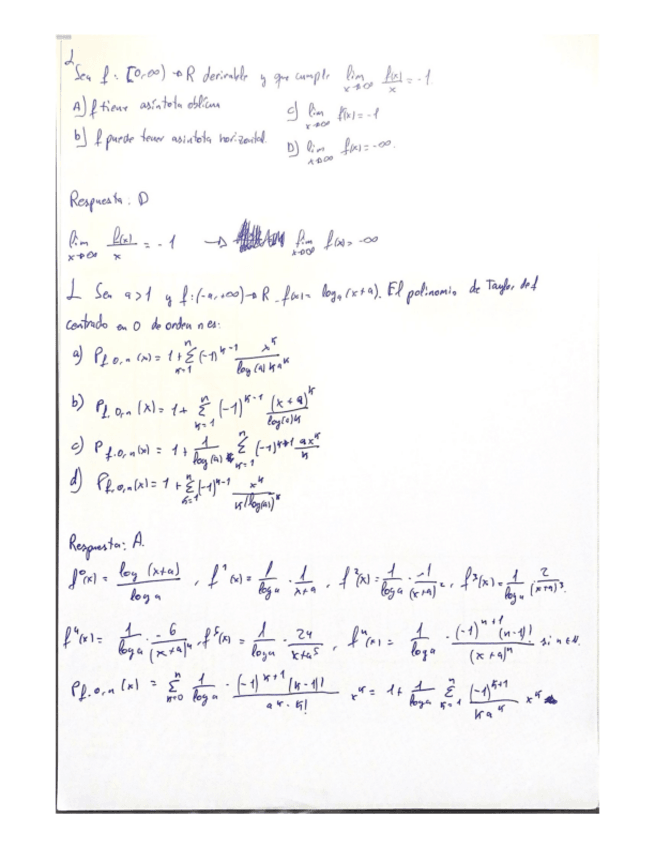 1. Sea f: [0,∞) → R derivable y que cumple lim x→∞ f(x)/x = -1.
A) f tiene asíntota oblicua
C) lim x→∞ f(x) = -1
b) f puede tener asíntota horizontal.
D) lim x→∞ f(x) = -∞.
Respuesta: D
lim x→∞ f(x)/x = -1 → lim x→∞ f(x) = -∞
1 Sea a>1 y f: (-a,+∞) → R _ f(x) = log_a (x+a). El polinomio de Taylor de f
centrado en 0 de orden n es:
a) P_f,0,n (x) = 1 + Σ_{k=1}^n (-1)^{k-1} x^k / (log(a) k a^k)
b) P_f,0,n (x) = 1 + Σ_{k=1}^n (-1)^{k-1} (x+a)^k / (log(a) k)
c) P_f,0,n (x) = 1 + 1/log(a) Σ_{k=1}^n (-1)^{k+1} ax^k / k
d) P_f,0,n (x) = 1 + Σ_{k=1}^n (-1)^{k-1} x^k / (k (log(a))^k)
Respuesta: A.
f^0(x) = log (x+a) / log a , f^1(x) = 1/log a · 1/(x+a) , f^2(x) = 1/log a · -1/(x+a)^2 , f^3(x) = 1/log a · 2/(x+a)^3 .
f^4(x) = 1/log a · -6/(x+a)^4 , f^5(x) = 1/log a · 24/x+a^5 , f^n(x) = 1/log a · (-1)^{n+1} (n-1)! / (x+a)^n si n∈N.
P_f,0,n (x) = Σ_{k=0}^n 1/log a · (-1)^{k+1} (k-1)! / (a^k · k!) x^k = 1 + 1/log a Σ_{k=1}^n (-1)^{k+1} / (k a^k) x^k